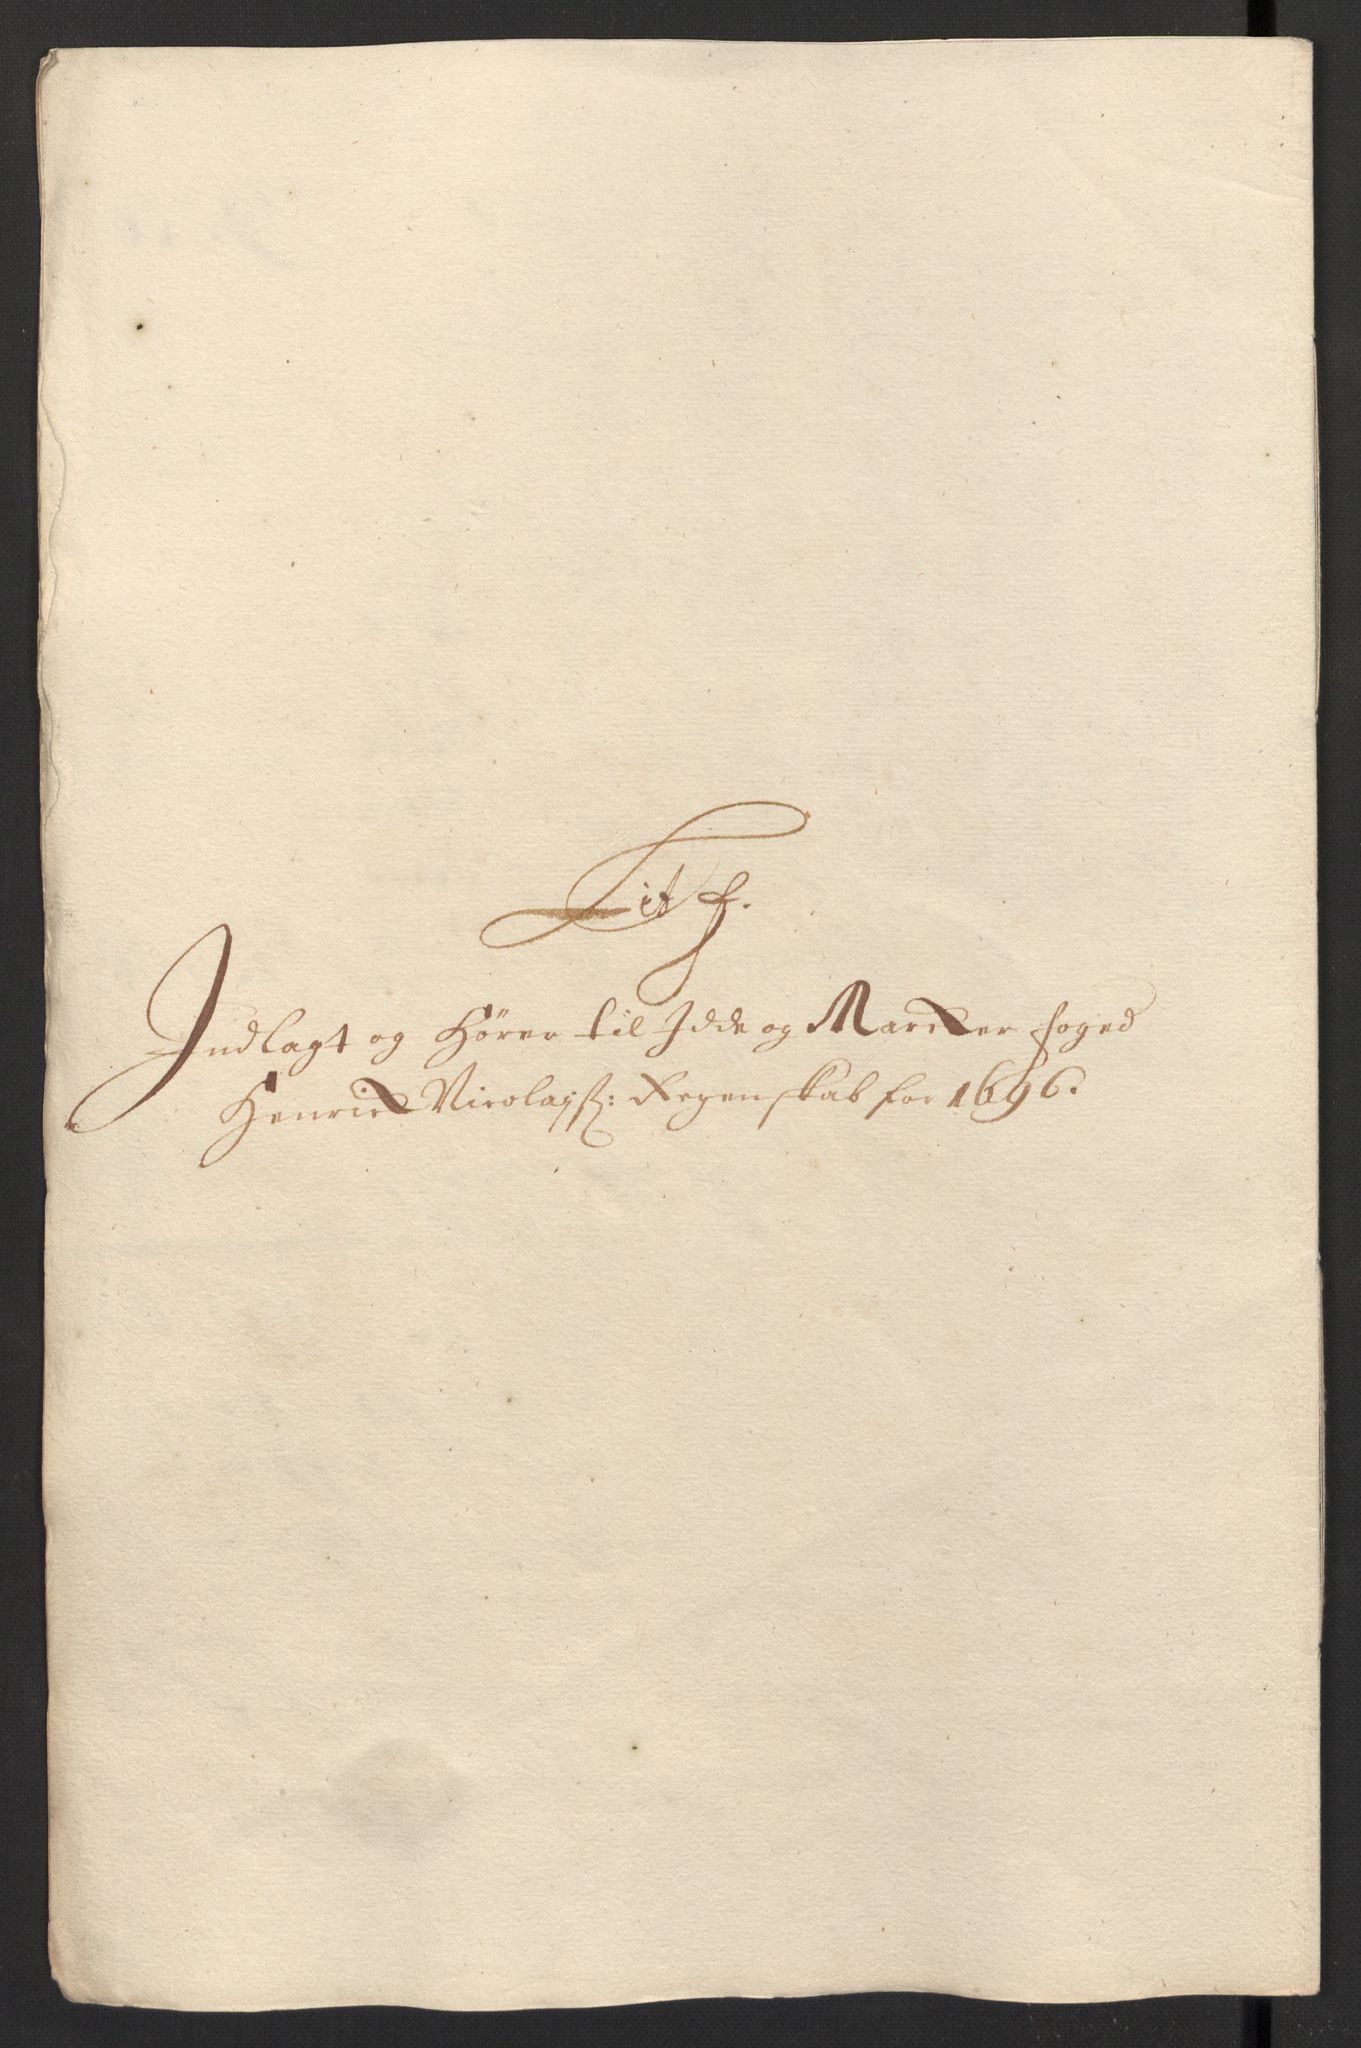 Lit F.
Indlagt og Hører til Idde og Marcker foged
Henrick Nicolajsß: Regenskab for 1696.